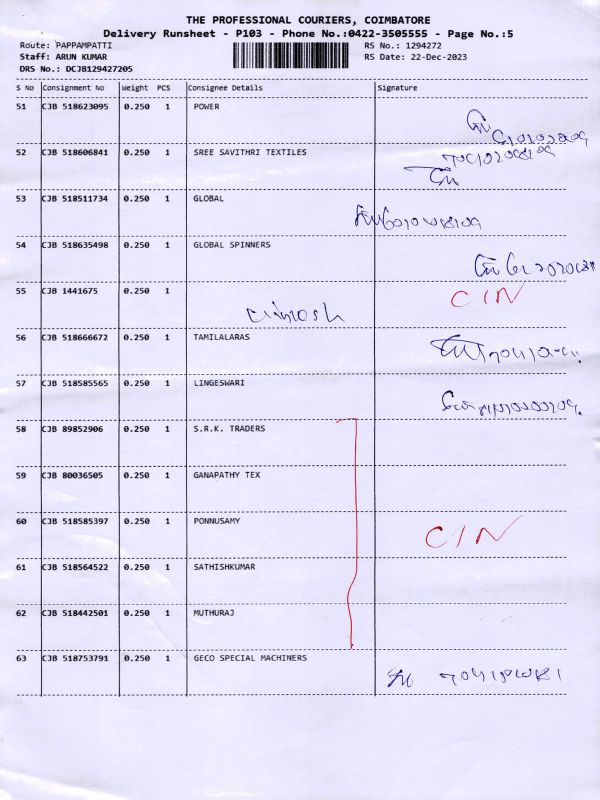 THE PROFESSIONAL COURIERS, COIMBATORE
Delivery Runsheet - P103 - Phone No.:0422-3505555 - Page No.:5
Route: PAPPAMPATTI RS No.: 1294272
Staff: ARUN KUMAR RS Date: 22-Dec-2023
DRS No.: DCJB129427205
S No Consignment No Weight PCS Consignee Details Signature
51 CJB 518623095 0.250 1 POWER
52 CJB 518606841 0.250 1 SREE SAVITHRI TEXTILES
53 CJB 518511734 0.250 1 GLOBAL
54 CJB 518635498 0.250 1 GLOBAL SPINNERS
55 CJB 1441675 0.250 1 CIN
56 CJB 518666672 0.250 1 TAMILALARAS
57 CJB 518585565 0.250 1 LINGESWARI
58 CJB 89852906 0.250 1 S.R.K. TRADERS
59 CJB 80036505 0.250 1 GANAPATHY TEX
60 CJB 518585397 0.250 1 PONNUSAMY CIN
61 CJB 518564522 0.250 1 SATHISHKUMAR
62 CJB 518442501 0.250 1 MUTHURAJ
63 CJB 518753791 0.250 1 GECO SPECIAL MACHINERS